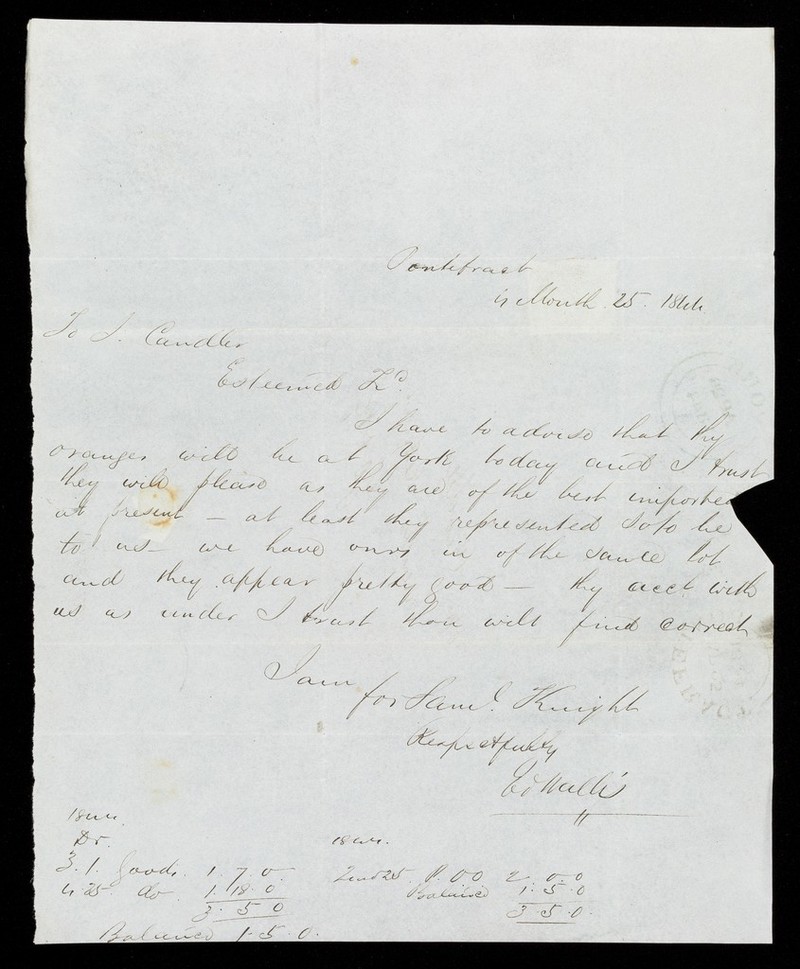 Pontefract
4 Month 25. 1844
To J. Candler
Esteemed Fd.
I have to advise that thy
oranges will be at York today and I trust
they will please as they are of the best imported
at present – at least they represented so to be
to us – we have ours in of the same lot
and they appear pretty good – thy acct. with
us as under I trust thou wilt find correct
I am
for Saml. Knight
Respectfully
1844.
Dr. 1844.
3. 1. Goods. 1. 7. 0 2 mo 25 P.OO 2. 0. 0
4 25 do 1. 18. 0 Balance 1. 5. 0
3. 5. 0 3. 5. 0.
Balance 1. 5. 0.